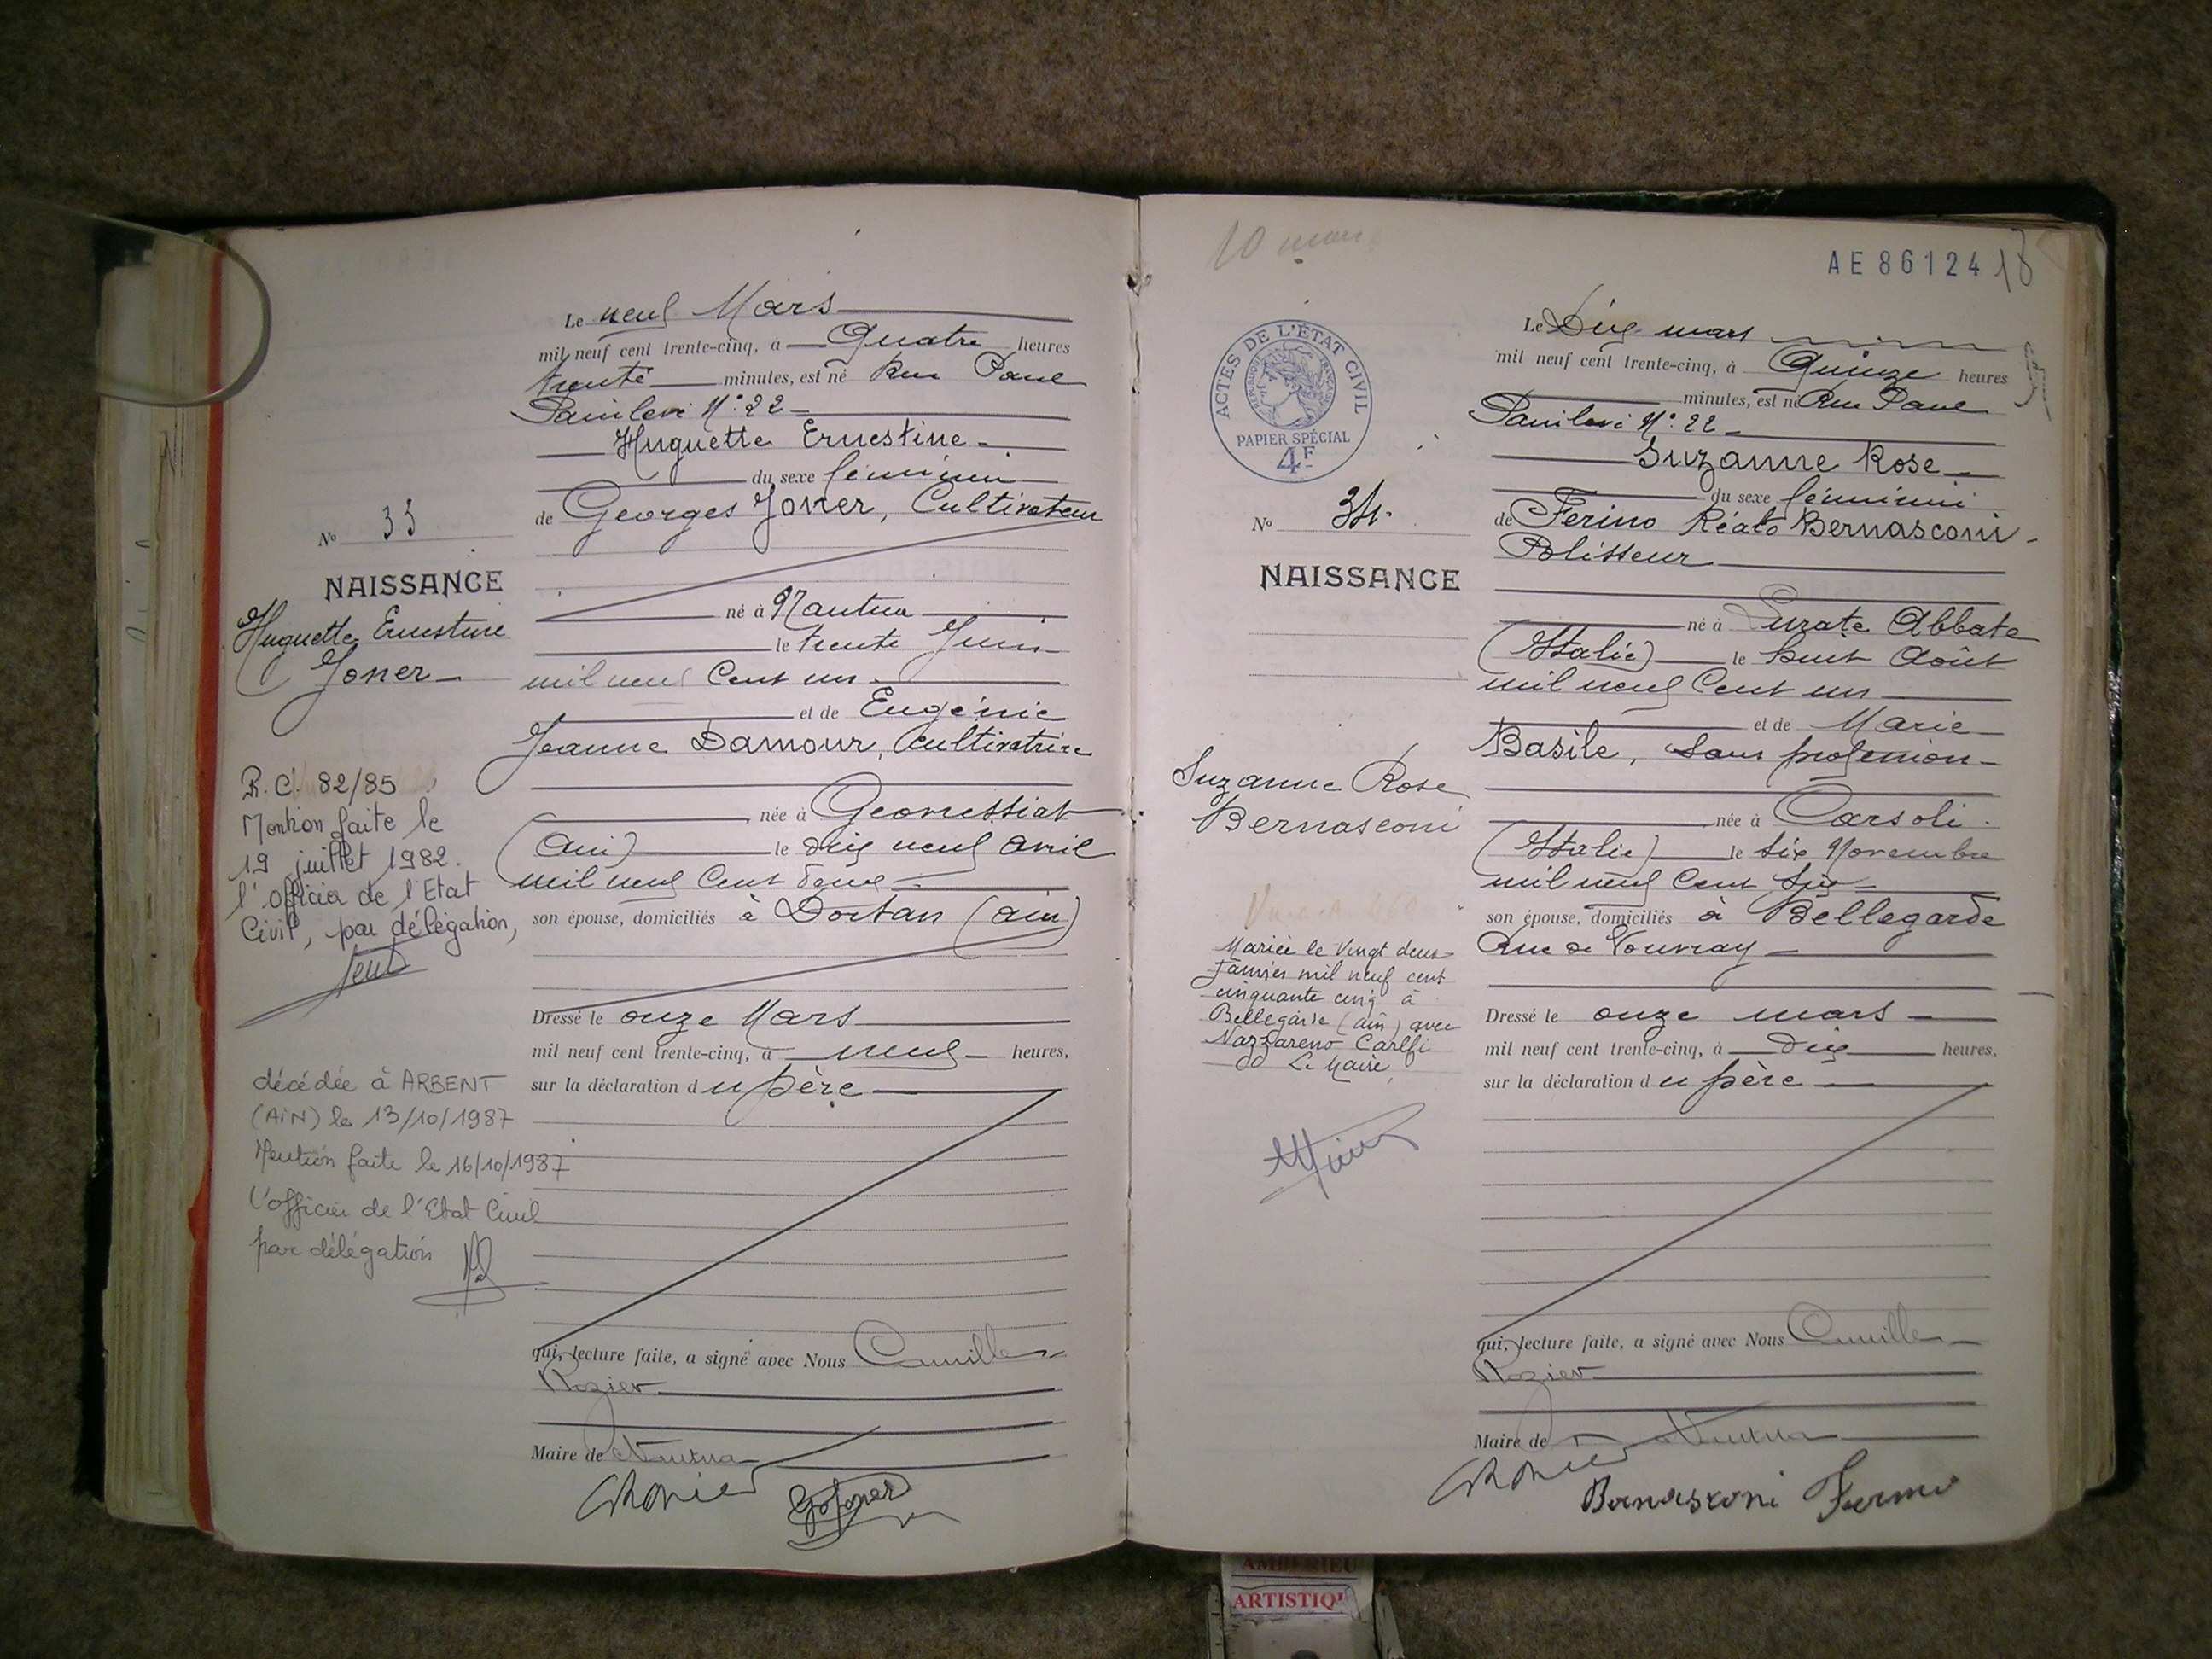 Le neuf Mars
mil neuf cent trente-cinq, à Quatre heures
trente minutes, est né Rue Paul
Painlevé N° 22
Huguette Ernestine
du sexe féminin
de Georges Joner, Cultivateur
né à Nantua
le trente Juin
mil neuf Cent un
et de Eugénie
Jeanne Damour, Cultivatrice
née à Géovressiat
(Ain) le dix neuf Avril
mil neuf Cent douze
son épouse, domiciliés à Dortan (Ain)
Dressé le onze Mars
mil neuf cent trente-cinq, à neuf heures,
sur la déclaration du père
qui, lecture faite, a signé avec Nous Camille
Rozier
Maire de Nantua
GJoner
No 33
NAISSANCE
Huguette Ernestine
Joner
R.C. 82/85
Mention faite le
19 juillet 1982.
l'officier de l'Etat
Civil, par délégation,
décédée à ARBENT
(AIN) le 13/10/1987
Mention faite le 16/10/1987
L'officier de l'Etat Civil
par délégation
10 mars
AE 86124 18
ACTES DE L'ÉTAT CIVIL
RÉPUBLIQUE FRANÇAISE
PAPIER SPÉCIAL
4F
No 34.
NAISSANCE
Suzanne Rose
Bernasconi
Mariée le Vingt deux
Janvier mil neuf cent
cinquante cinq à
Bellegarde (Ain) avec
Nazzareno Carlfi
Le Maire
Le Dix mars
mil neuf cent trente-cinq, à Quinze heures
minutes, est né Rue Paul
Painlevé N° 22
Suzanne Rose
du sexe féminin
de Ferino Réato Bernasconi
Polisseur
né à Lurate Abbate
(Italie) le huit Août
mil neuf Cent un
et de Marie
Basile, sans profession
née à Carsoli
(Italie) le six Novembre
mil neuf Cent six
son épouse, domiciliés à Bellegarde
Rue de Vouvray
Dressé le onze mars
mil neuf cent trente-cinq, à dix heures,
sur la déclaration du père
qui, lecture faite, a signé avec Nous Camille
Rozier
Maire de Nantua
Bernasconi Fermo
AMBERIEU
ARTISTIQ